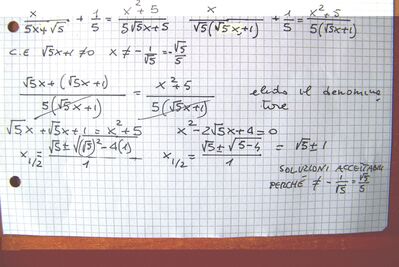 x/(5x+√5) + 1/5 = (x²+5)/(5√5x+5)   x/(√5(√5x+1)) + 1/5 = (x²+5)/(5(√5x+1))
C.E √5x+1≠0 x≠-1/√5=-√5/5
(√5x+(√5x+1))/(5(√5x+1)) = (x²+5)/(5(√5x+1)) elido il denomina
tore
√5x+√5x+1=x²+5   x²-2√5x+4=0
x₁/₂ = (√5±√((√5)²-4(1)))/1   x₁/₂ = (√5±√(5-4))/1 = √5±1
SOLUZIONI ACCETTABILI
PERCHÉ ≠ -1/√5=√5/5